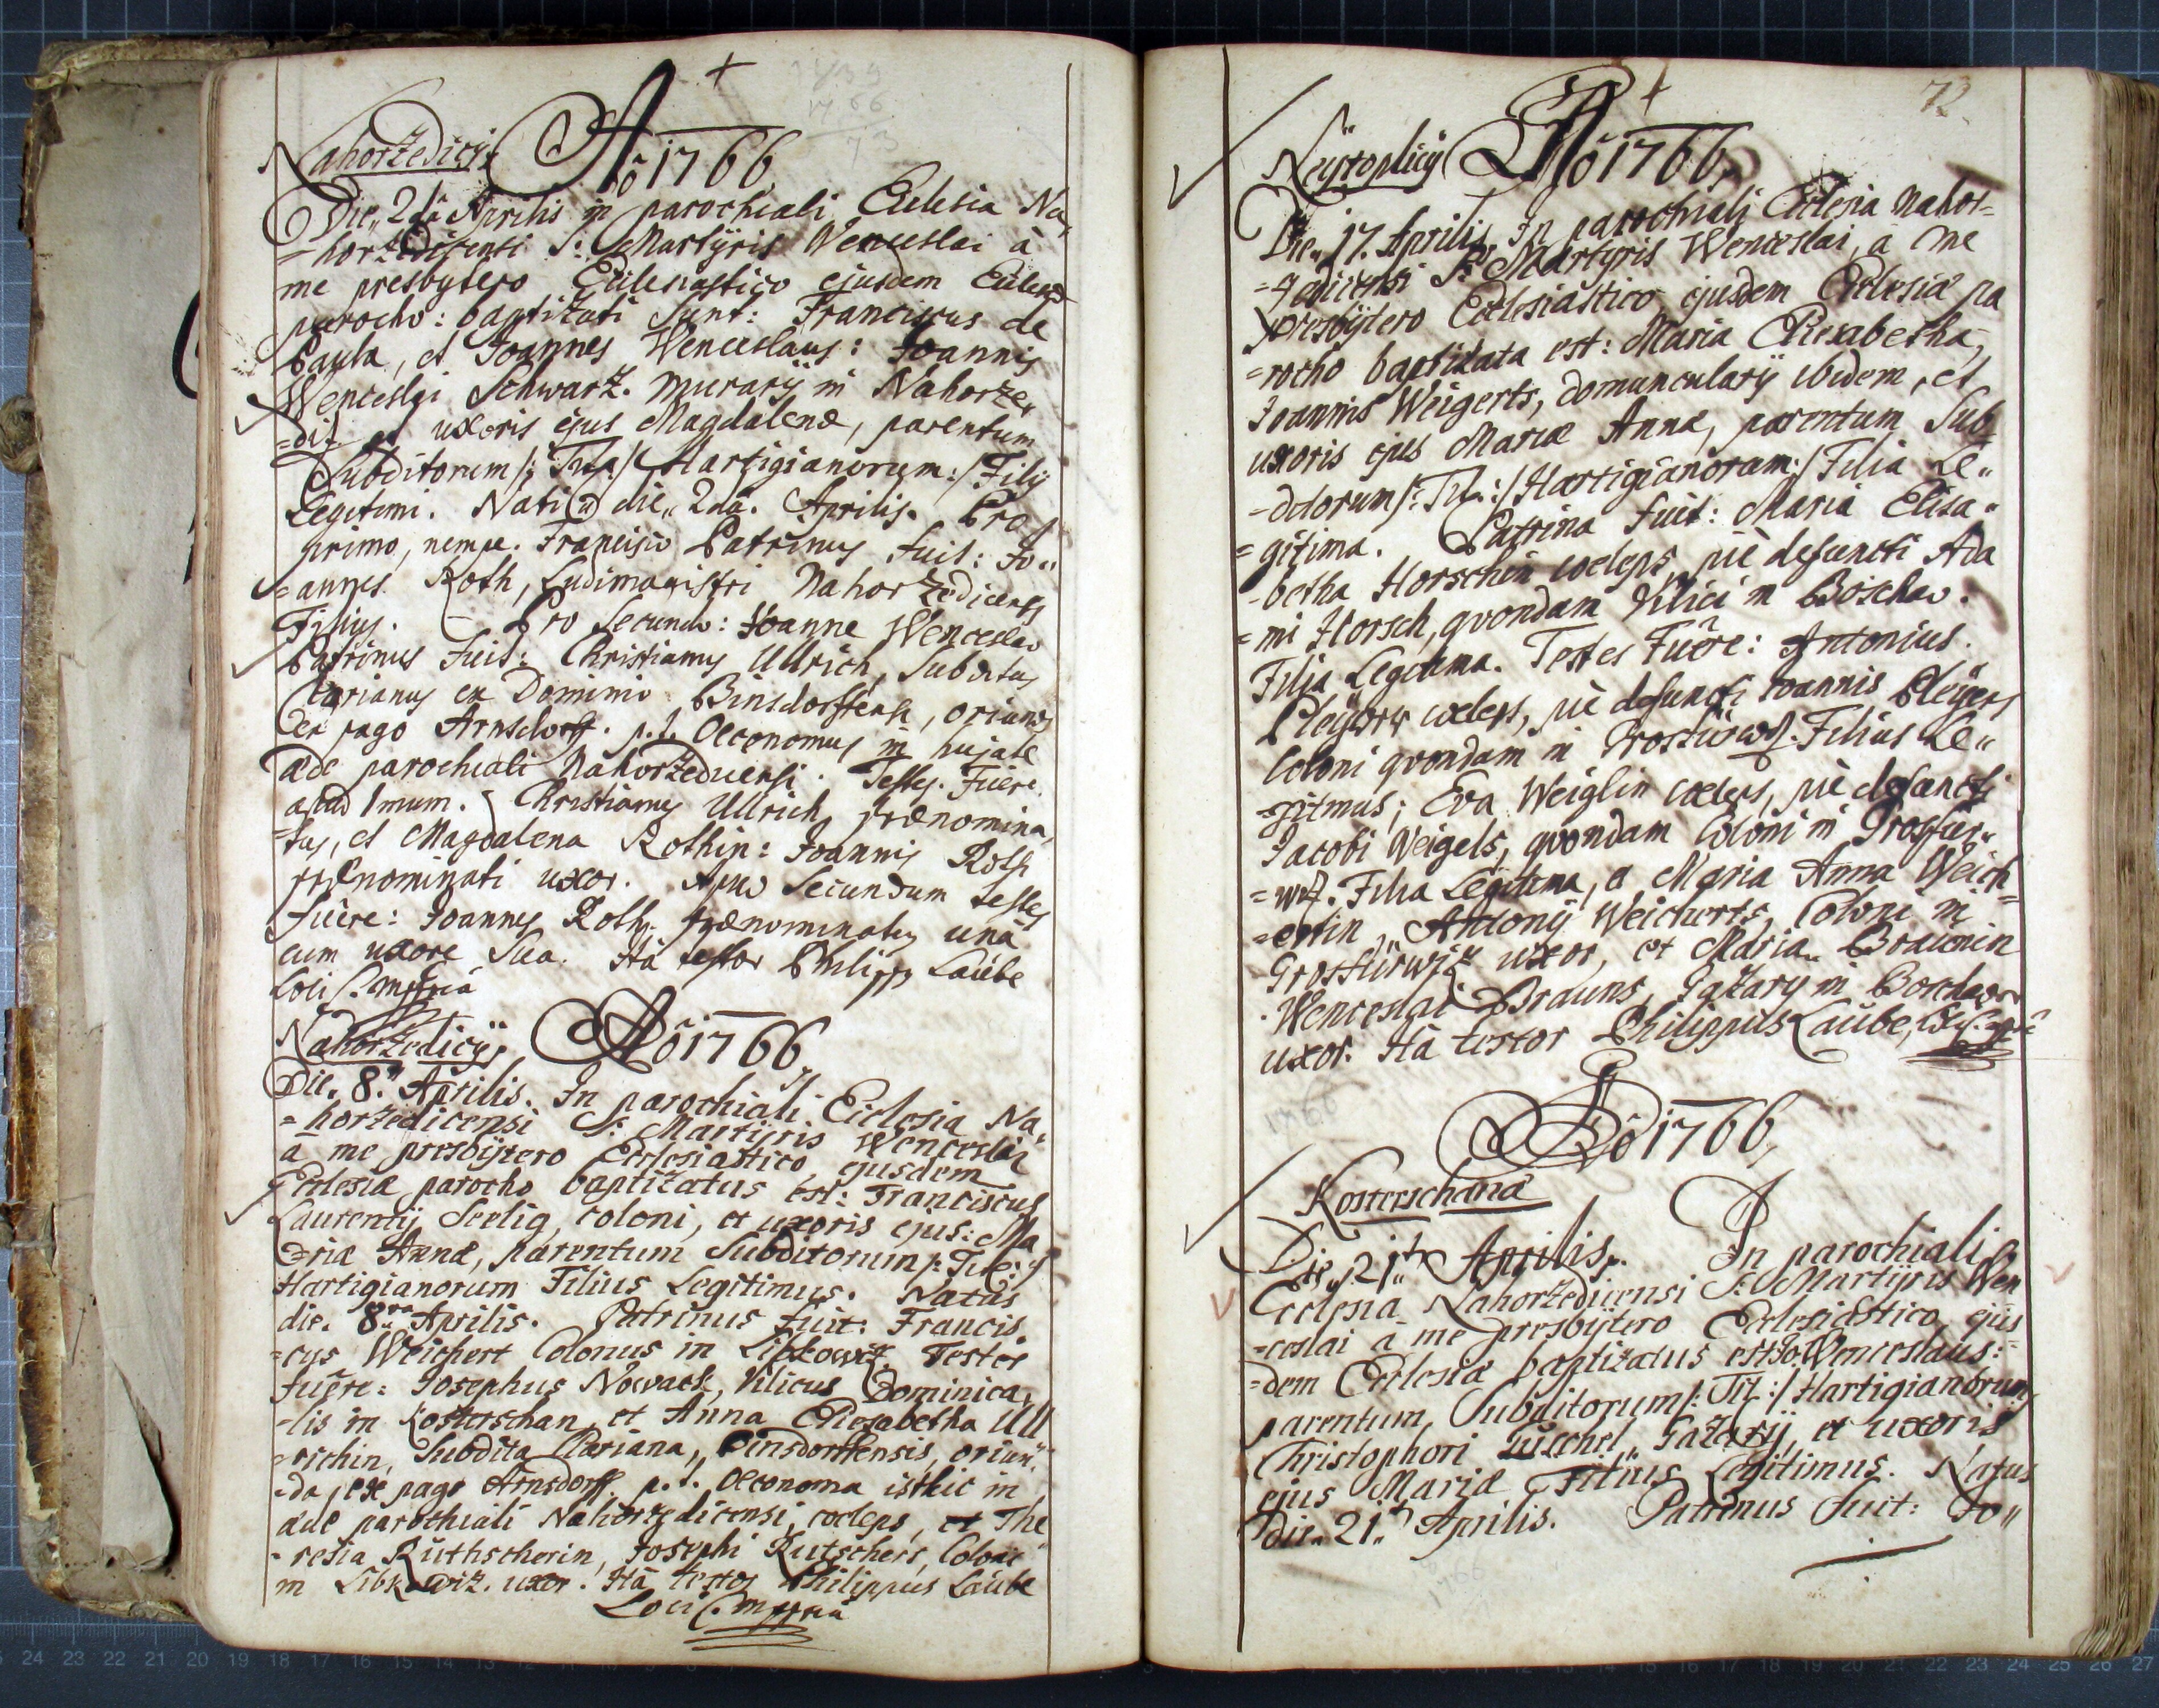 1739
1766
73
Nahoržedicÿ. Aõ 1766
Die„ 2dâ Aprilis in parochiali Ecclesia Na„
=horžedicensi S: Martÿris Wenceslai à
me presbytero Ecclesiastico ejusdem Ecclesiæ
parocho: baptizati sunt: Franciscus de
Paula, et Joannes Wenceslaus: Joannis
Wenceslai Schwarz. murarÿ in Nahorže„
=diz et uxoris ejus Magdalenæ, parentum
Subditorum /: Tit: / Hartigianorum: / Filÿ
Legitimi. Nati die„ 2dâ. Aprilis. Pro
primo, nempe. Francisco Patrinus fuit: Jo„
=annes Roth, Ludimagistri Nahoržedicensis
Filius. Pro Secundo: Joanne Wenceslao
Patrinus fuit: Christianus Ullrich, Subditus
Clarianus ex Dominio Binsdorffensi, oriundus
ex pago Arnsdorff. p.t. Oeconomus in hujate
æde parochiali Nahoržedicensi. Testes. Fuêre.
apud 1mum. Christianus Ullrich prænomina„
=tus, et Magdalena Rothin: Joannis Roth
prænominati uxor. Apud Secundum testes
fuêre: Joannes Roth. prænominatus unà
cum uxore sua. Ità testor Philipp Laube
Loci C. mppria
Nahoržedicÿ, Aõ 1766,
Die„ 8. Aprilis. In parochiali Ecclesia Na„
=horžedicensi S: Martÿris Wenceslai
à me presbÿtero Ecclesiastico ejusdem
Ecclesiæ parocho baptizatus est: Franciscus
Laurentÿ Seelig, coloni, et uxoris ejus: Ma
=riæ Annæ, parentum Subditorum /: Tit:/
Hartigianorum Filius Legitimus. Natus
die. 8va Aprilis. Patrinus fuit: Francis.
=cus Weichert Colonus in Libkowiz. Testes
fuêre: Josephus Nowack, Vilicus Dominica„
=lis in Kosterschan, et Anna Elisabetha Ull
=richin, Subdita Clariana, Binsdorffensis, oriun„
=da, ex pago Arnsdorff. p.t. Oeconoma isthic in
æde parochiali Nahoržedicensi, cœlebs, et The
=resia Rutscherin, Josephi Rutschers, Coloni
in Libkowiz. uxor. Ità testor Philippus Laube
Loci C. mppria
72
Neÿtoplicÿ Aõ 1766,
Die„ 17. Aprilis In parochiali Ecclesia Nahor=
=žedicensi S: Martyris Wenceslai, à me
presbÿtero Ecclesiastico ejusdem Ecclesiæ pa
=rocho baptizata est: Maria Elisabetha,
Joannis Weigerts, domuncularÿ ibidem, et
uxoris ejus Mariæ Annæ, parentum Sub
=ditorum /: Tit: :/ Hartigianorum: / Filia Le„
=gitima. Patrina fuit: Maria Elisa„
=betha Horschin cœlebs, piè defuncti Ada
=mi Horsch, qvondam Vilici in Boschau.
Filia Legitima. Testes Fuêre: Antonius.
Pleÿer cœlebs, piè defuncti Joannis Pleÿers
Coloni qvondam in Grostürwz. Filius Le„
=gitmus; Eva Weiglin cœlebs, piè defuncti
Jacobi Weigels, qvondam Coloni in Grostür„
=wiz. Filia Legitima, et Maria Anna Weich=
=ertin, Antonÿ Weicherts, Coloni in
Grostürwiz uxor, et Maria Braunin
Wenceslai Brauns, Gazarÿ in Boschau
uxor. Ità testor Philippus Laube,
1766
Aõ 1766,
Kosterschanæ
Die„ 21. Aprilis. In parochiali
Ecclesia Nahoržedicensi S: Martÿris Wen
=ceslai à me presbÿtero Ecclesiastico ejus
=dem Ecclesiæ baptizatus est Jo Wenceslaus:
parentum, Subditorum /: Tit: :/ Hartigianorum
Christophori Tuschel„ Gazarÿ, et uxoris
ejus Mariæ Filius Legitimus. Natus
die„ 21. Aprilis. Patrinus fuit: Jo„
1766